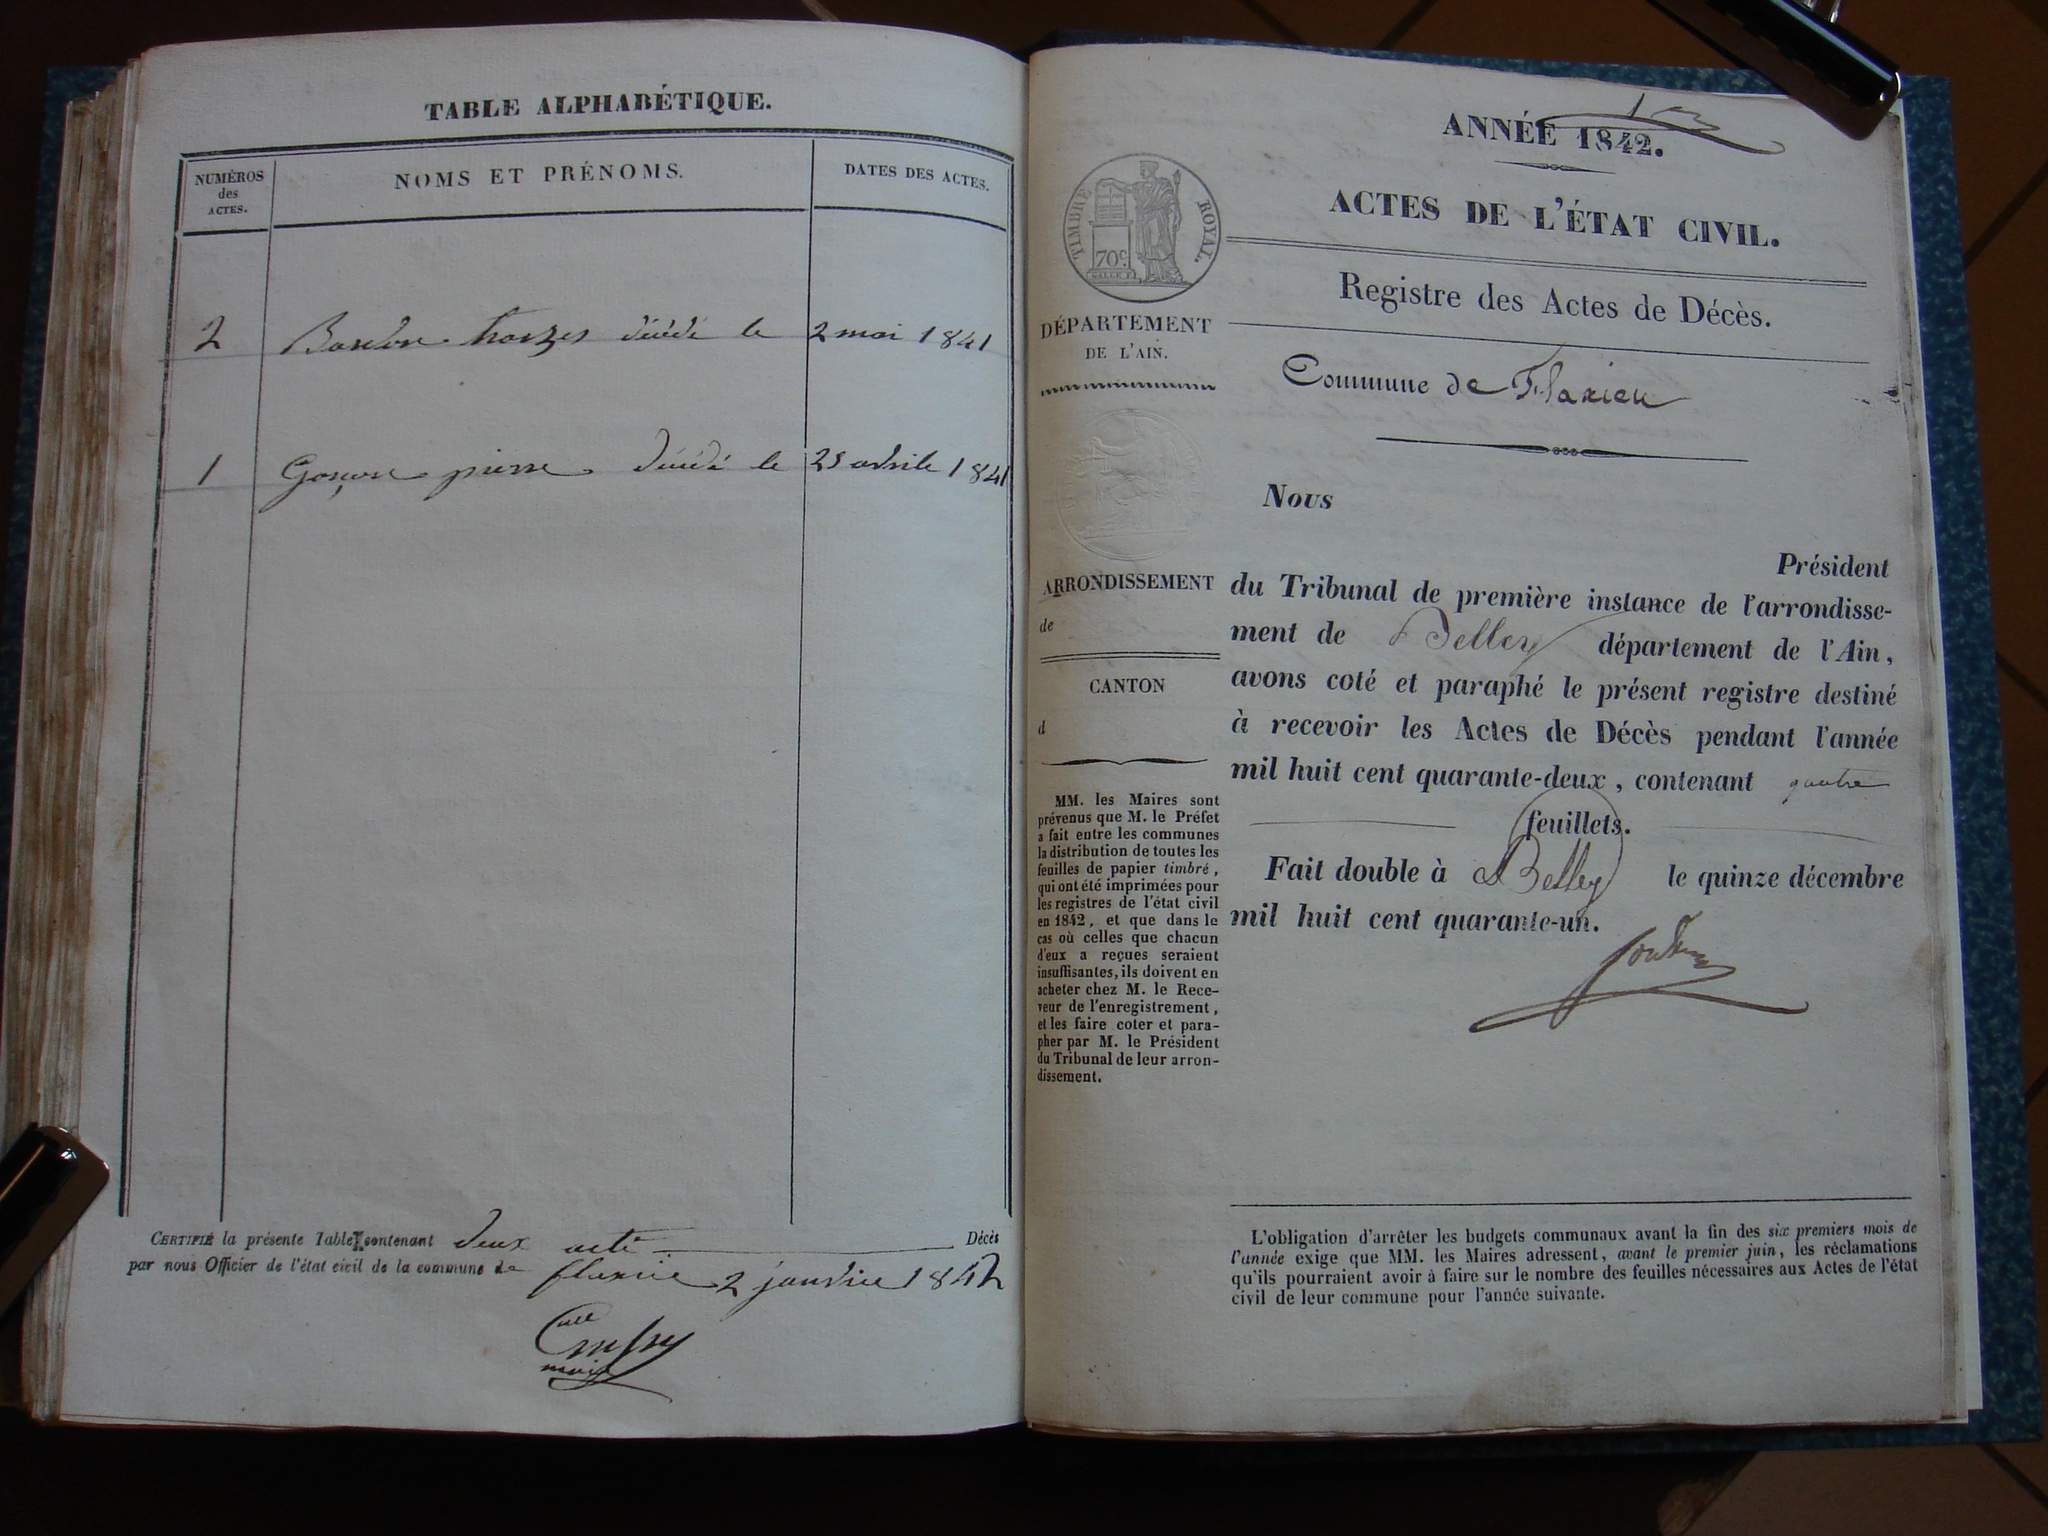 TABLE ALPHABÉTIQUE.
NUMÉROS
des
ACTES.
NOMS ET PRÉNOMS.
DATES DES ACTES.
2 décédé le 2 mai 1841
1 pierre décédé le 25 avrile 1841
CERTIFIÉ la présente Table contenant deux acte Décès
par nous Officier de l'état civil de la commune de flaxie 2 janvie 1842
maire
ANNÉE 1842.
ACTES DE L'ÉTAT CIVIL.
Registre des Actes de Décès.
Commune de Flaxieu
TIMBRE ROYAL.
70c.
DÉPARTEMENT
DE L'AIN.
ARRONDISSEMENT
de
CANTON
d
MM. les Maires sont
prévenus que M. le Préfet
a fait entre les communes
la distribution de toutes les
feuilles de papier timbré,
qui ont été imprimées pour
les registres de l'état civil
en 1842, et que dans le
cas où celles que chacun
d'eux a reçues seraient
insuffisantes, ils doivent en
acheter chez M. le Rece-
veur de l'enregistrement,
et les faire coter et para-
pher par M. le Président
du Tribunal de leur arron-
dissement.
Nous
Président
du Tribunal de première instance de l'arrondisse-
ment de Belley département de l'Ain,
avons coté et paraphé le présent registre destiné
à recevoir les Actes de Décès pendant l'année
mil huit cent quarante-deux, contenant quatre
feuillets.
Fait double à Belley le quinze décembre
mil huit cent quarante-un.
L'obligation d'arrêter les budgets communaux avant la fin des six premiers mois de
l'année exige que MM. les Maires adressent, avant le premier juin, les réclamations
qu'ils pourraient avoir à faire sur le nombre des feuilles nécessaires aux Actes de l'état
civil de leur commune pour l'année suivante.